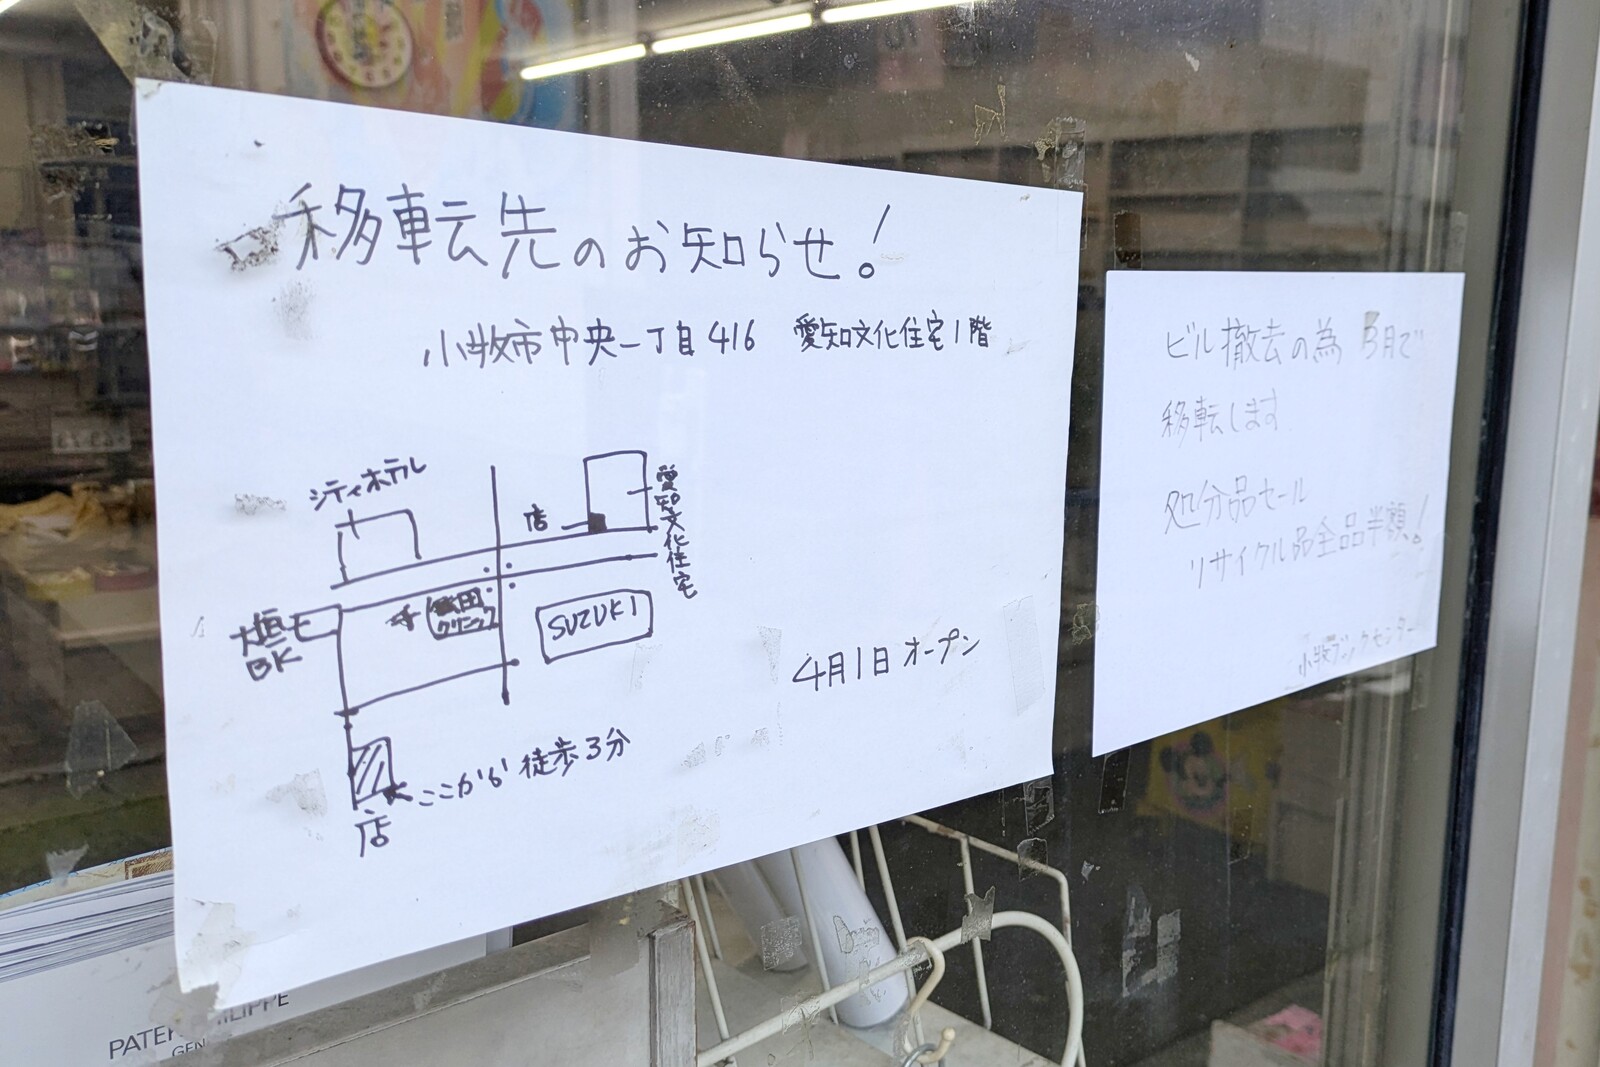 移転先のお知らせ!
小牧市中央一丁目416 愛知文化住宅1階
シティホテル
店
愛知文化住宅
大垣
BK
クリニック
SUZUKI
4月1日 オープン
ここから 徒歩3分
店
ビル撤去の為 3月で
移転します
処分品セール
リサイクル品全品半額!
小牧ブックセンター
PATEK PHILIPPE
GEN